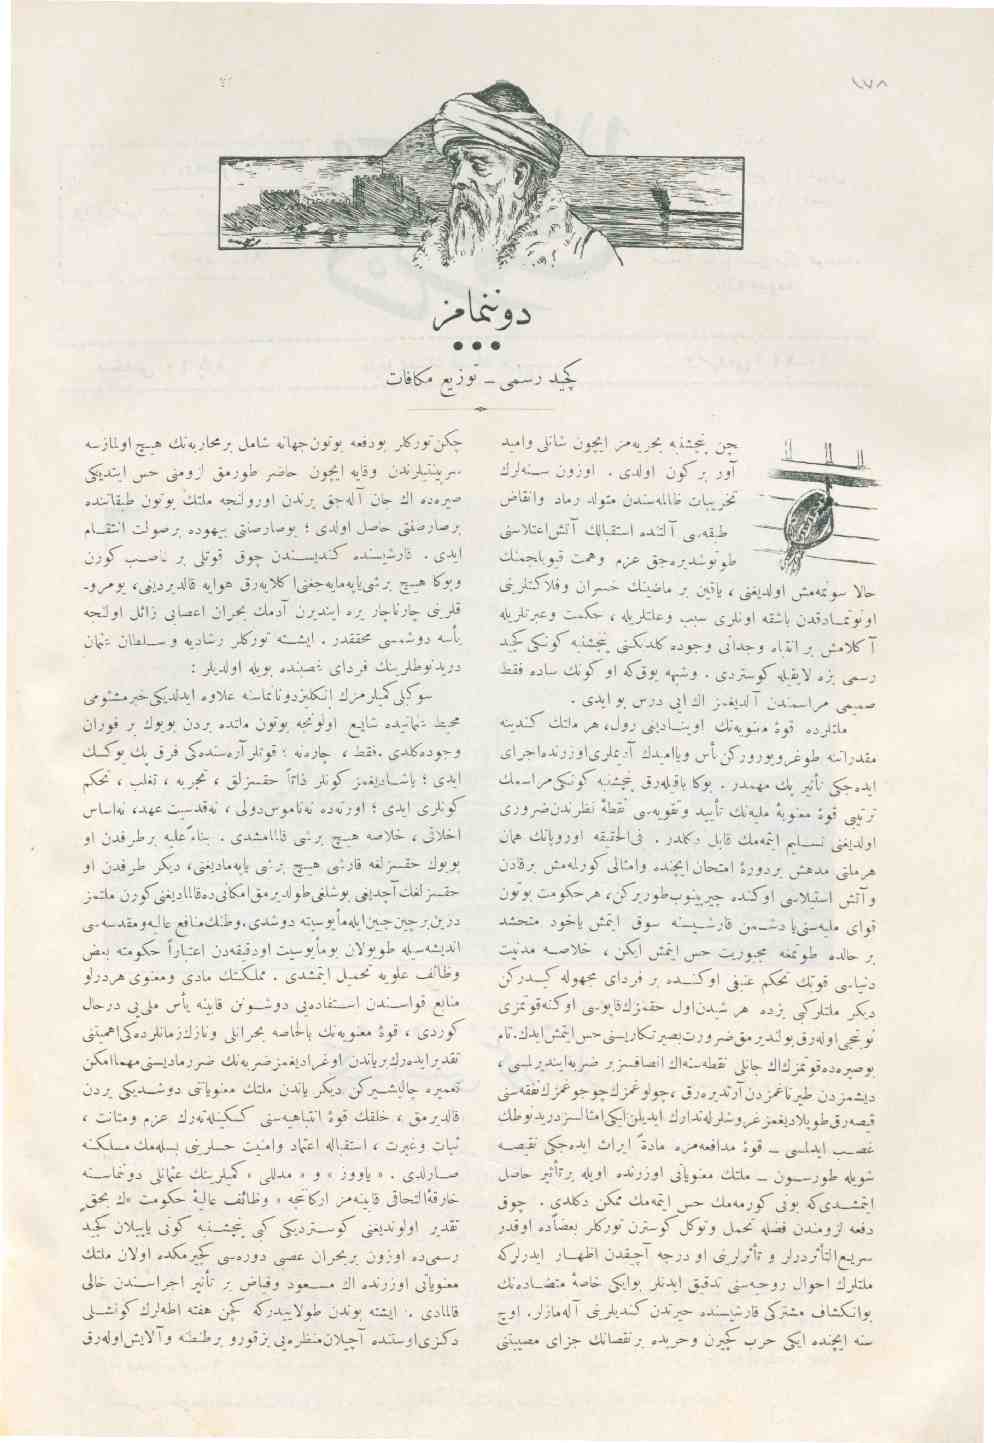 ١٧٨
دوننمامز
كچيد رسمى ــ توزيع مكافات
چن پنجشنبه بحريه‌مز ايچون شانلى واميد
آور بر كون اولدى . اوزون سنه‌لرك
تخريبات ظالمه‌سندن متولد رماد وانقاض
طبقه‌سى آلتنده استقبالك آتش اعتلاسنى
طوتوشديره‌جق عزم وهمت قيويلجمنك
حالا سونمه‌مش اولديغنى ، ياقين بر ماضينك خسران وفلاكتلرينى
اونوتمادقدن باشقه اونلرى سبب وعلتلريله ، حكمت وعبرتلريله
آ كلامش بر انتباه وجدانى وجوده كلديكنى پنجشنبه كونكى كچيد
رسمى بزه لايقيله كوستردى . وشبهه يوقكه او كونك ساده فقط
صميمى مراسمندن آلديغمز اك ايى درس بو ايدى .
ملتلرده قوۀ معنويه‌نك اوينــاديغى رول، هر ملتك كندينه
مقدراتنه طوغرو يوروركن يأس وياميدك آديملرى اوزرنده اجراى
ايده‌جكى تأثير پك مهمدر . بوكا باقيله‌رق پنجشنبه كونكى مراسمك
ترتيبى قوۀ معنويۀ مليه‌نك تأييد وتقويه‌سى نقطۀ نظرندن ضرورى
اولديغنى تسليم ايتمه‌مك قابل دكلدر . فى‌الحقيقه اوروپانك همان
هر ملتى مدهش بر دورۀ امتحان ايچنده وامثالى كورلمه‌مش بر قان
وآتش استيلاسى اوكنده چيرپينوب طوريركن، هر حكومت بوتون
قواى مليه‌سنى يا دشمن قارشيسنه سوق ايتمش ياخود متحشد
بر حالده طوتمغه مجبوريت حس ايتمش ايكن ، خلاصــه مدنيت
دنياسى قوتك تحكم عنيفى اوكنــده بر فرداى مجهوله كيــدركن
ديكر ملتلر كبى بزده هر شيدن اول حقمزك قاپوسى اوكنه قوتمزى
نوبتجى اوله‌رق بولنديرمق ضرورت بصيرتكاريسنى حس ايتمش ايدك. تام
بوصيره‌ده قوتمزك اك جانلى نقطه‌سنه اك انصافسز بر ضربه اينديرلمسى ،
ديشمزدن طيرناغمزدن آرتديره‌رق ، چولوغمزك چوجوغمزك نفقه‌سنى
قيصه‌رق طوپلاديغمز غروشلرله تدارك ايديلن ايكى امثالسز دريدنوطك
غصــب ايدلمسى ــ قوۀ مدافعه‌مزه مادةً ايراث ايده‌جكى نقيصــه
شويله طورسون ــ ملتك معنوياتى اوزرنده اويله بر تأثير حاصل
ايتمشــدى كه بونى كورمه‌مك حس ايتمه‌مك ممكن دكلدى . چوق
دفعه لزومندن فضله تحمل وتوكل كوسترن توركلر بعضاً ده اوقدر
سريع‌التأثردرلر و تأثرلرينى او درجه آچيقدن اظهــار ايدرلر كه
ملتلرك احوال روحيه‌سنى تدقيق ايدنلر بوايكى خاصۀ متضــاده‌نك
بو انكشاف مشتركى قارشيسنده حيرتدن كنديلرينى آله‌مازلر. اوچ
سنه ايچنده ايكى حرب كچيرن وحربده بر نقصانك جزاى مصيبتنى
چكن توركلر بو دفعه بوتون جهانه شامل بر محاربه‌نك هيــچ اولمازسه
سرپينتيلرندن وقايه ايچون حاضر طورمق لزومنى حس ايتديكى
صيره‌ده اك جان آله‌جق يرندن اورولنجه ملتك بوتون طبقاتنده
بر صارصنتى حاصل اولدى ؛ بوصارصنتى بيهوده بر صولت انتقــام
ايدى . قارشيسنده كنديســندن چوق قوتلى بر غاصــب كورن
وبوكا هيــچ بر شى ياپه‌مايه‌جغنى اكلايه‌رق هوايه قالديرديغى، يومروـ
قلرينى چار ناچار يره اينديرن آدمك بحران اعصابى زائل اولنجه
يأسه دوشمسى محققدر . ايشــته توركلر رشاديه و ســلطان عثمان
دريدنوطلرينك فرداى غصبنده بويله اولديلر :
سوكيلى كميلرمزك انكليز دونانماسنه علاوه ايدلديكى خبر مشئومى
محيط عثمانيده شايع اولونجه بوتون ملتده بردن بويوك بر فوران
وجوده كلدى . فقط ، چاره نه ؛ قوتلر آره‌سنده كى فرق پك يوكسك
ايدى ؛ ياشــاديغمز كونلر ذاتاً حقسزلق ، تجربه ، تغلب ، تحكم
كونلرى ايدى ؛ اورته‌ده نه ناموس دولى ، نه قدسيت عهد، نه اساس
اخلاقى ، خلاصه هيــچ بر شى قالمامشدى . بناءً عليه بر طرفدن او
بويوك حقسزلغه قارشى هيــچ بر شى ياپه‌ماديغى، ديكر طرفدن او
حقسزلغك آچديغى بوشلغى طولديرمق امكانى ده قالماديغنى كورن ملتمز
درين بر چين جبين ايله مأيوسيته دوشدى. وطنك منافع عاليه ومقدسه‌سى
انديشه‌سيله طوپولان بو مأيوسيت اودقيقه‌دن اعتباراً حكومته بعض
وظائف علويه تحميل ايتمشدى . مملكتك مادى ومعنوى هر درلو
منابع قواســندن اســتفاده‌يى دوشــونن قابينه يأس ملى‌يى درحال
كوردى ، قوۀ معنويه‌نك بالخاصه بحرانلى ونازك زمانلرده كى اهميتنى
تقدير ايده‌رك بر ياندن اوغراديغمز ضربه‌نك ضرر ماديسنى مهما امكن
تعميره چاليشيركن ديكر ياندن ملتك معنوياتنى دوشــديكى يردن
قالديرمق ، خلقك قوۀ انتباهيه‌سنى كسكينلته‌رك عزم ومتانت ،
ثبات وغيرت ، استقباله اعتماد وامنيت حسلرينى بسله‌مك مسلكنه
صــارلدى . « ياووز » و « مدللى » كميلرينك عثمانلى دونانماســنه
خارقۀ التحاقى قابينه‌مز اركاننجه « وظائف عاليۀ حكومت »ك بحقٍ
تقدير اولونديغنى كوســترديكى كبى پنجشــنبه كونى ياپيلان كچيد
رسمى ده اوزون بر بحران عصبى دوره‌سى كچيرمكده اولان ملتك
معنوياتى اوزرنده اك مســعود وفياض بر تأثير اجراســندن خالى
قالمادى . ايشته بوندن طولاييدر كه كچن هفته اطه‌لرك كونشــلى
دكزى اوستنده آچيلان منظره‌يى بز قورو بر طنطنه وآلايش اوله‌رق